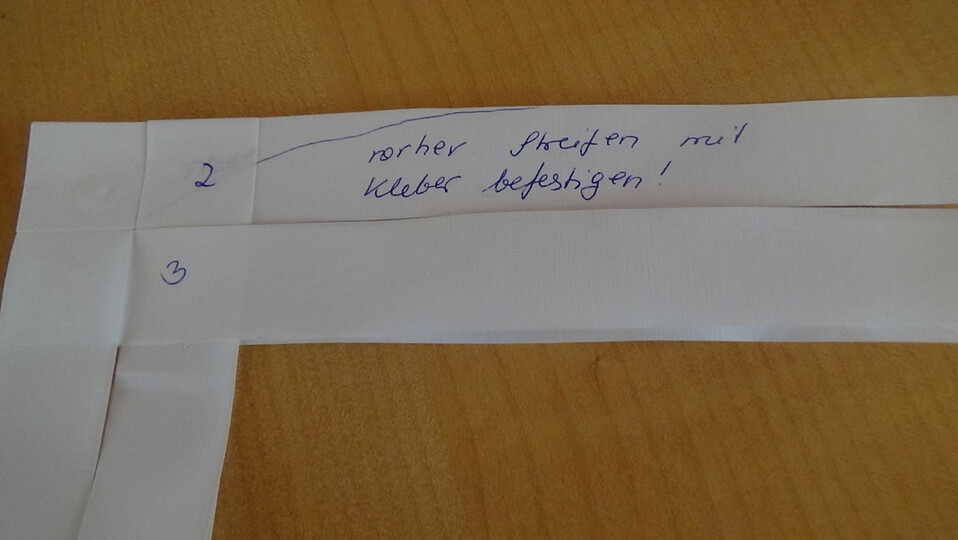 2
vorher Streifen mit
Kleber befestigen!
3